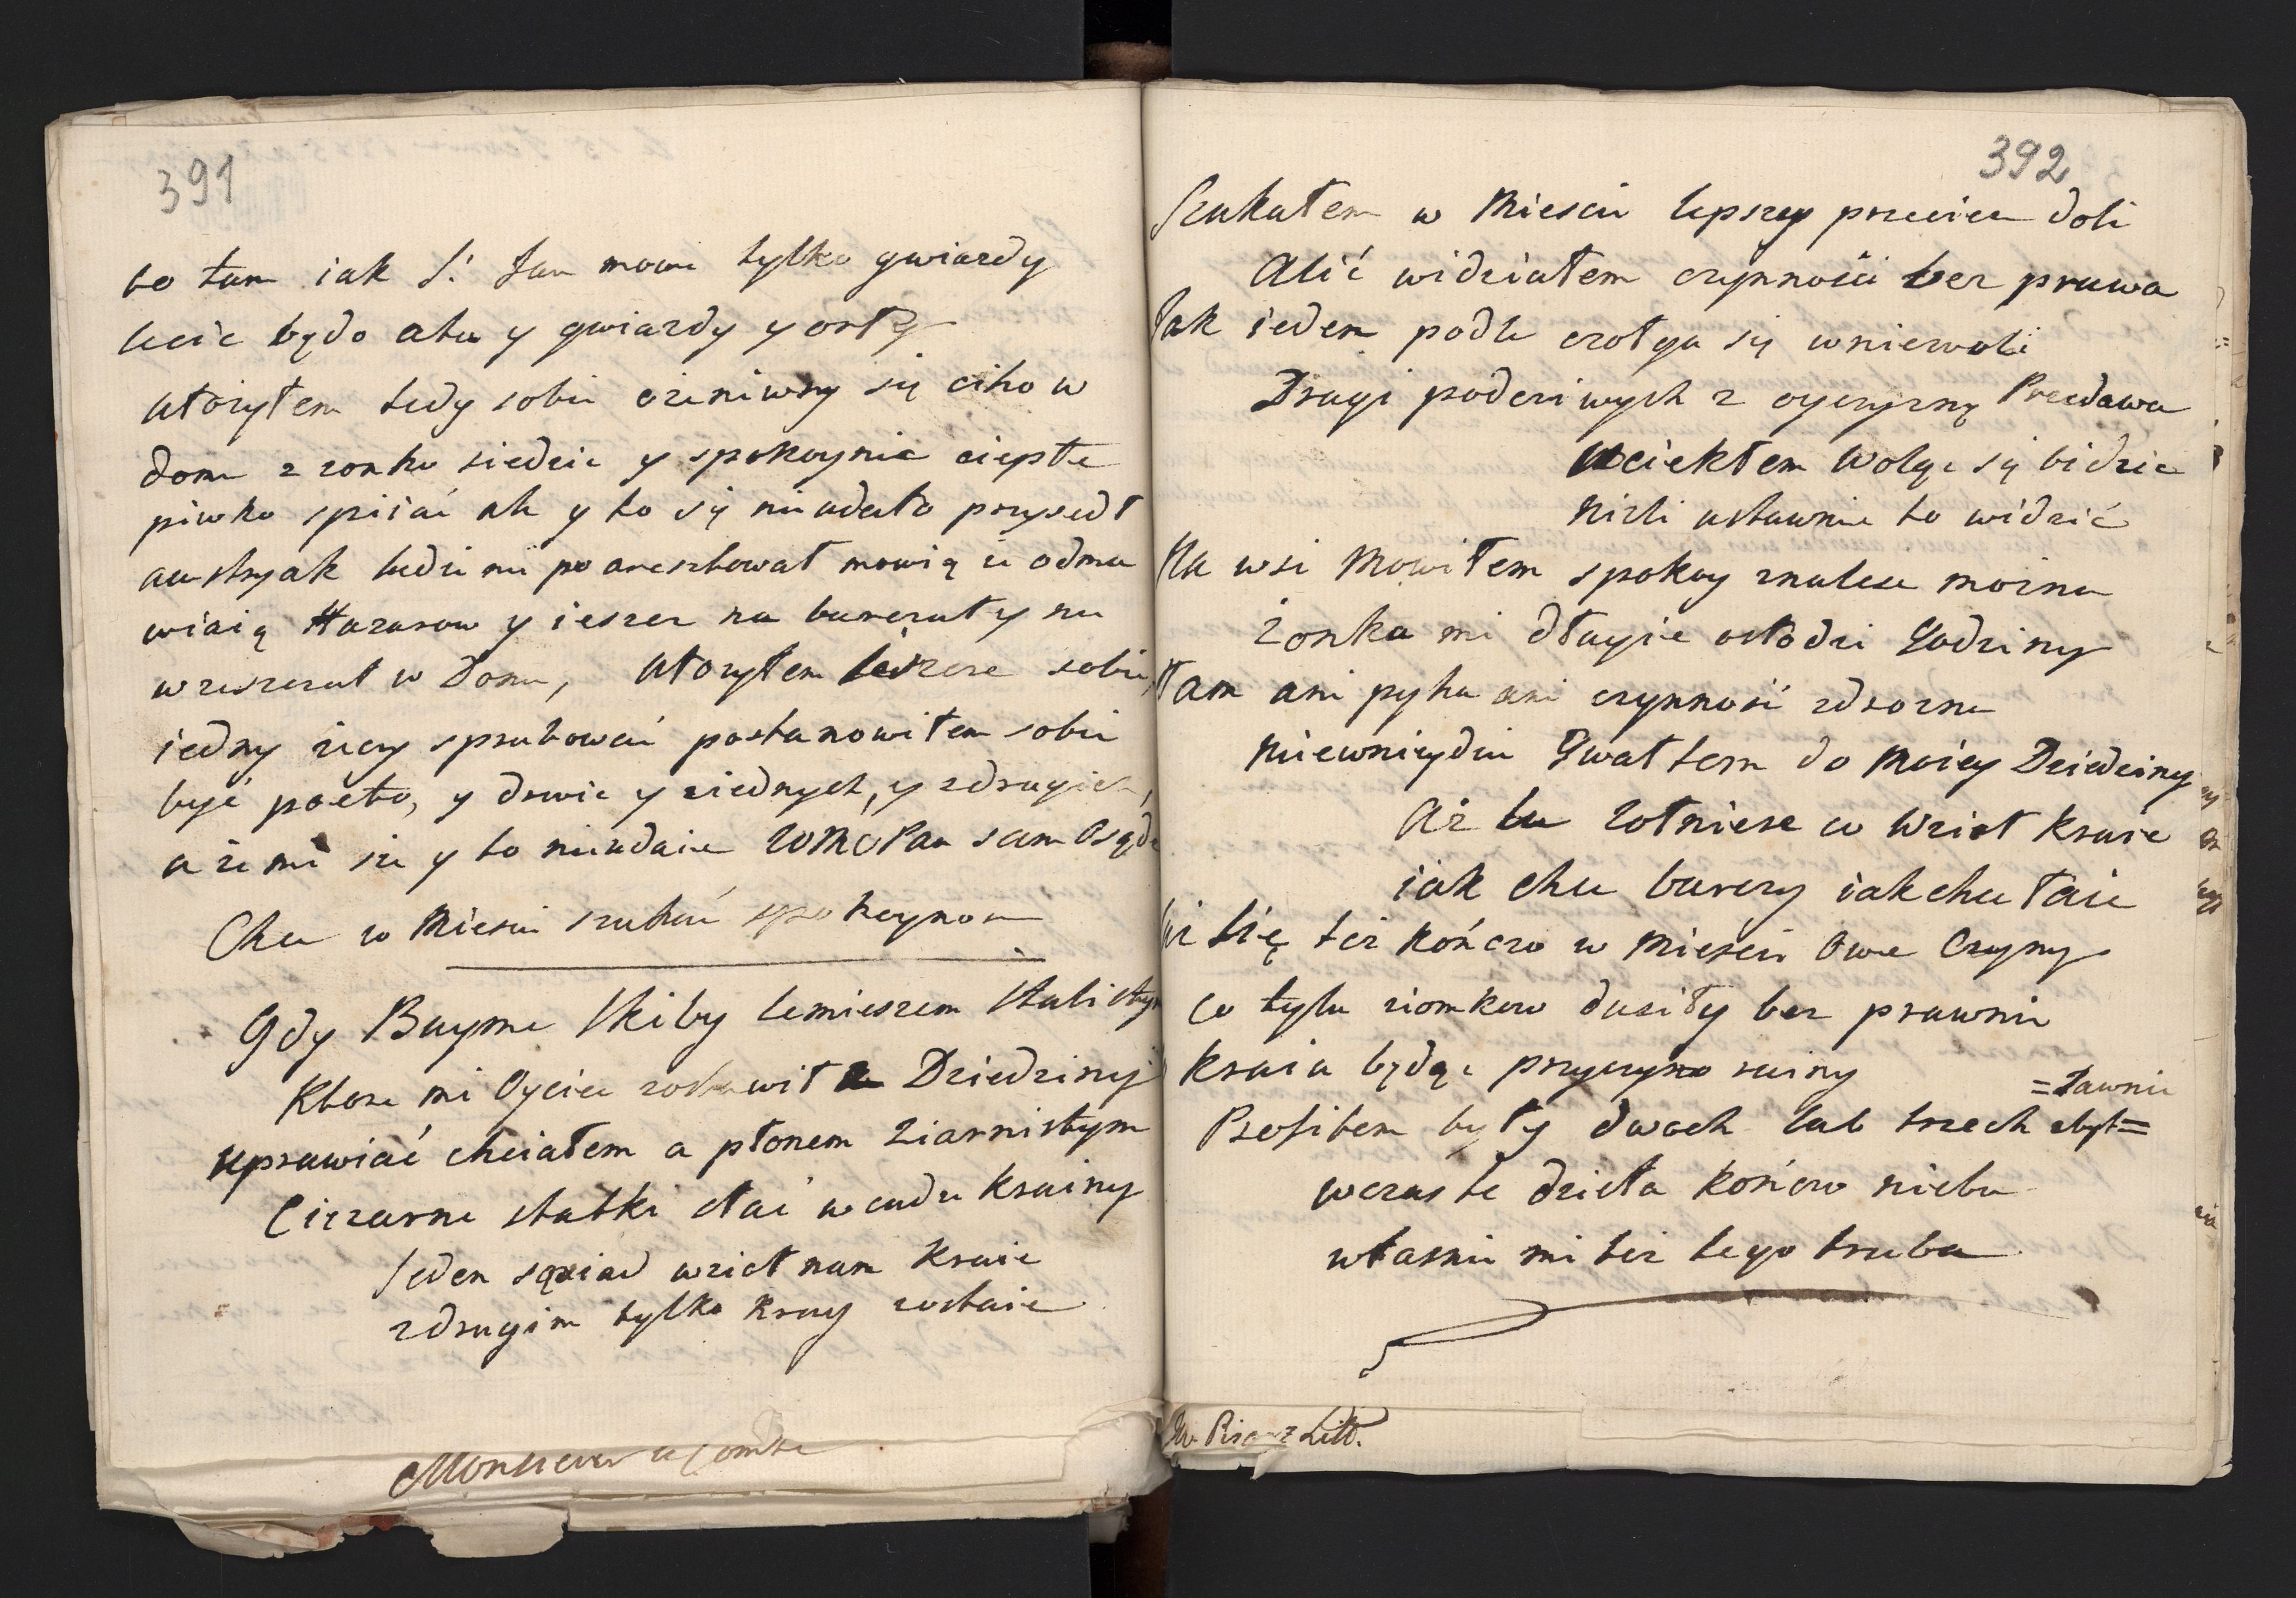 391
bo tam iak S: Jan mowi tylko gwiazdy
lecic będo alu y gwiazdy y orły
ułorzyłem tedy sobie ożeniwszy się ciho w
domu z zonko siedzie y spokoynie ciepłe
piwko spiiać ale y to się nieudało przyszedł
austryak ludzi mi poaresztował mowią że odma
wiaią Huzarow y ieszcze na bunczuty na
wrzeszczał w Domu, ułorzyłem ieszcze sobie
iedny rzeczy sprubować postanowiłem sobie
być poeto, y drwic y ziednych, y zdrugich,
a że mi sie y to nieudaie WMc Pan sam Osądz
Chce w Miescie szukać spokoynosci
Gdy Buyne Skiby lemieszem stalistym
Ktore mi Oyciec zostawił Dziedziny
uprawiać chciałem a płonem ziarnistym
Ciezarne statki słać w cudze Krainy
Jeden sąsiad wzioł nam Kraie
zdrugim tylko Kray zostaie
Monsieur le Comte
392
Szukałem w Miescie lepszey przecie doli
Alić widziałem czynności bez prawa
Jak ieden podle czołga się wniewoli
Drugi poderiwych z oyczyzną Przedawa
Uciekłem Woląc się bidzic
Nizli ustawnie to widzić
Na wsi Mowiłem spokoy znalesc mozna
Zonka mi długie osłodzi Godziny
Tam ani pyha ani czynność zdrozna
Niewniydzie Gwałtem do Moiey Dziedziny
Aż tu Zołnierz co Wzioł Kraie
iak chce burczy iak chce łaie
się też Kończo w Miescie Owe Czyny
Co tylu ziomkow dusiły bez prawnie
Kraiu będąc przyczyno ruiny
=Jawnie
Profitem były dwoch lub trzech zbyt=
wczas te dzieła Kończo nieba
własnie mi też tego trzeba
Pisarz Litt.